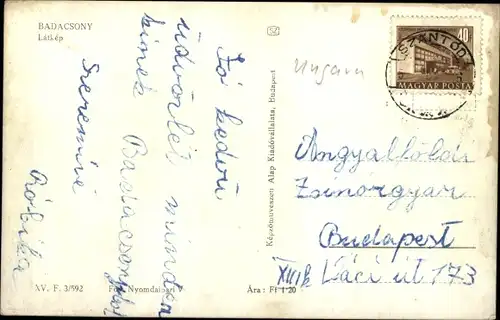 BADACSONY
Látkép
Jó kedvü
üdvözlet minden
kinek Badacsonyból
Szeretne
Róbika
XV. F. 3/592
Ára: Ft 1·20
Képzőművészeti Alap Kiadóvállalata, Budapest
Ungarn
40
MAGYAR POSTA
SZÁNTÓD
Angyalföldi
Zsinórgyár
Budapest
XIII k Láci út 173